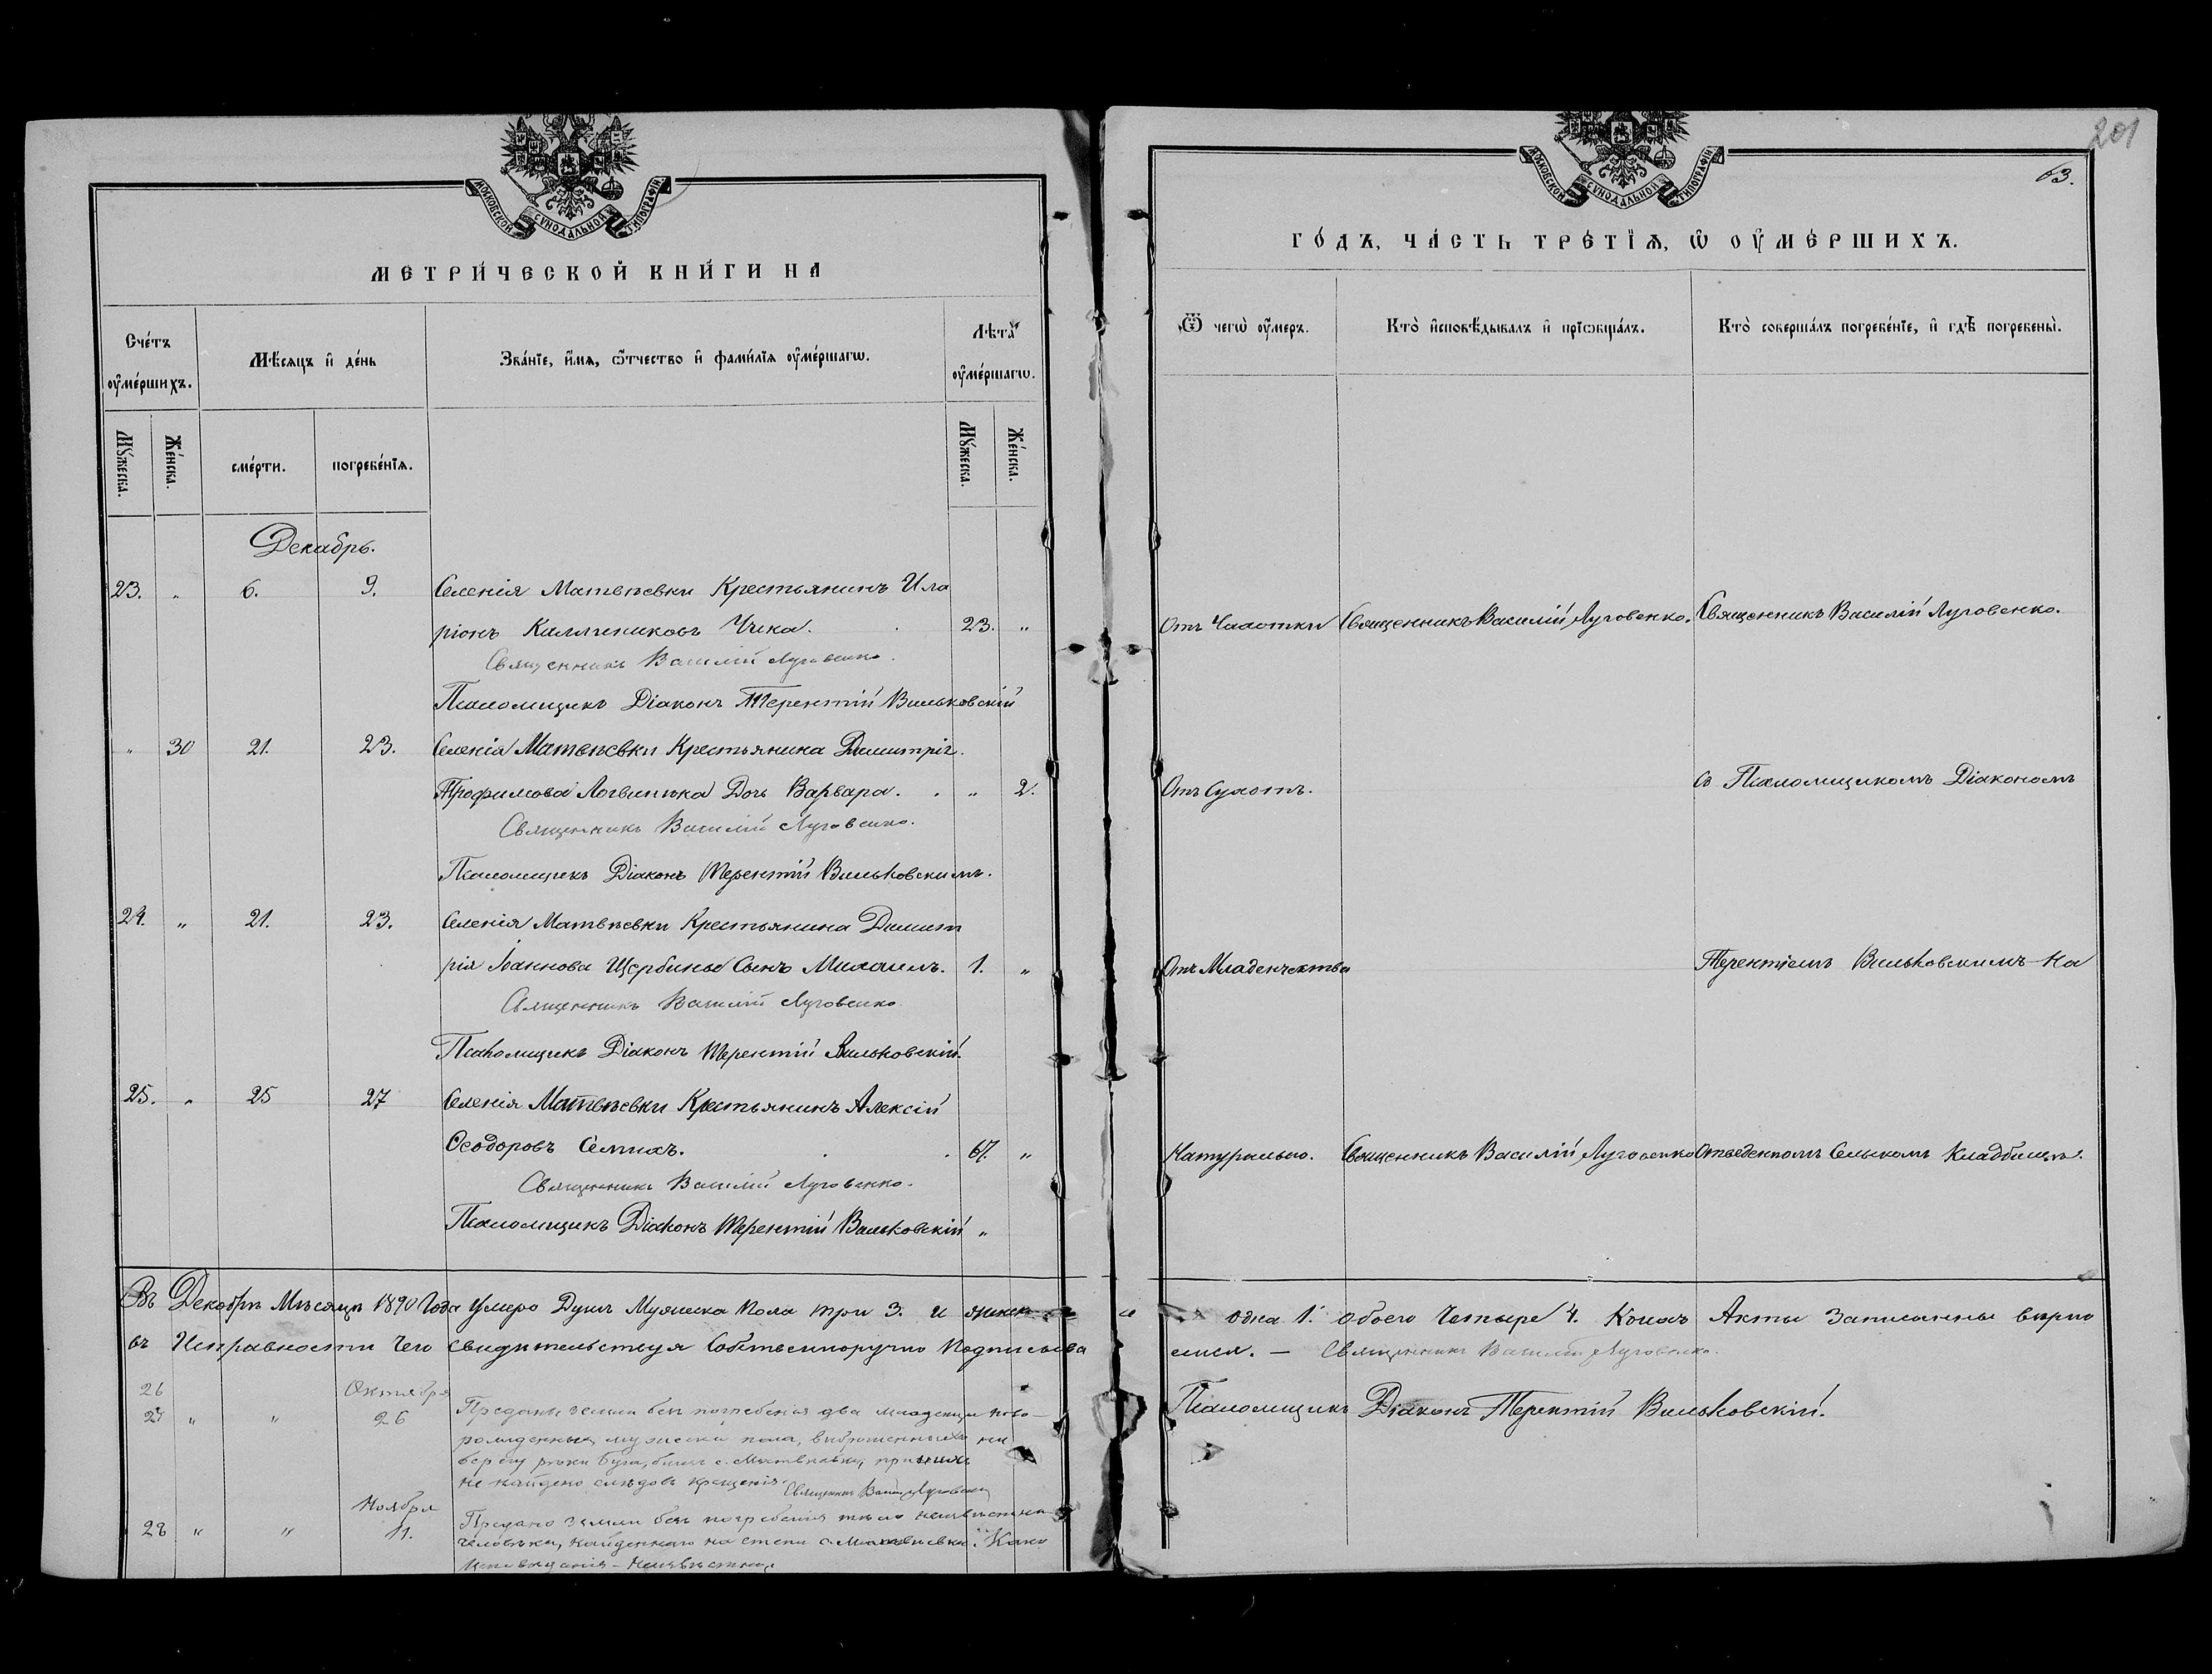 МОСКОВСКОЙ СѴНОДАЛЬНОЙ ТИПОГРАФІИ.
МЕТРИ́ЧЕСКОЙ КНИ́ГИ НА
Сче́тъ оу҆ме́ршихъ.
Мѣ́сяцъ и҆ де́нь
Зва́нїе, и҆́мѧ, ѻ҆́тчество и҆ фами́лїѧ оу҆ме́ршагѡ.
Лѣ́та оу҆ме́ршагѡ.
Мꙋ́жеска.
Же́нска.
сме́рти.
погребе́нїѧ.
Мꙋ́жеска.
Же́нска.
Декабрь.
23. „ 6. 9. Селенія Матвѣевки Крестьянинъ Ила
ріонъ Каллиниковъ Чика. 23. „
Священникъ Василій Луговенко.
Псаломщикъ Діаконъ Терентій Вильковскій
„ 30 21. 23. Селенія Матвѣевки Крестьянина Димитрія
Трофимова Логвиненка Дочь Варвара. „ 2.
Священникъ Василій Луговенко.
Псаломщикъ Діаконъ Терентій Вильковскимъ.
24. „ 21. 23. Селенія Матвѣевки Крестьянина Димит
рія Іоаннова Щербины Сынъ Михаилъ. 1. „
Священникъ Василій Луговенко
Псаломщикъ Діаконъ Терентій Вильковскій.
25. „ 25 27 Селенія Матвѣевки Крестьянинъ Алексій
Ѳеодоровъ Семкахъ. 67. „
Священникъ Василій Луговенко.
Псаломщикъ Діаконъ Терентій Вильковскій „
Въ Декабрѣ Мѣсяцѣ 1890 Года Умерло Душъ Мужеска Пола три 3. и женск
въ Исправности Чего Свидѣтельствуя Собственноручно Подписыва
26 Октября
27 „ „ 26 Преданы земли безъ погребенія два младенца ново-
рожденные, мужеска пола, выброшенные на
берегу рѣки Буга, близъ с. Матвѣевки, при нихъ
не найдено слѣдовъ крещенія. Священникъ Василій Луговенко
Ноября
28 „ „ 11. Предано земли безъ погребенія тѣло неизвѣстнаго
человѣка, найденнаго на степи с. Матвѣевки. Како
исповѣданія – неизвѣстно.
201
63.
МОСКОВСКОЙ СѴНОДАЛЬНОЙ ТИПОГРАФІИ.
ГО́ДЪ, ЧА́СТЬ ТРЕ́ТЇѦ, Ѡ҆ ОУ҆МЕ́РШИХЪ.
Ѿ чегѡ̀ оу҆́меръ.
Кто̀ и҆сповѣ́дывалъ и҆ прїѡбща́лъ.
Кто̀ соверша́лъ погребе́нїе, и҆ гдѣ̀ погребены̀.
Отъ Чахотки Священникъ Василій Луговенко. Священникъ Василій Луговенко.
Отъ Сухотъ. Съ Псаломщикомъ Діакономъ
Отъ Младенчества Терентіемъ Вильковскимъ на
Натурально. Священникъ Василій Луговенко Отведенномъ Сельскомъ Кладбищѣ.
одна 1. обоего Четыре 4. Коихъ Акты Записанны вѣрно
емся. – Священникъ Василій Луговенко.
Псаломщикъ Діаконъ Терентій Вильковскій.